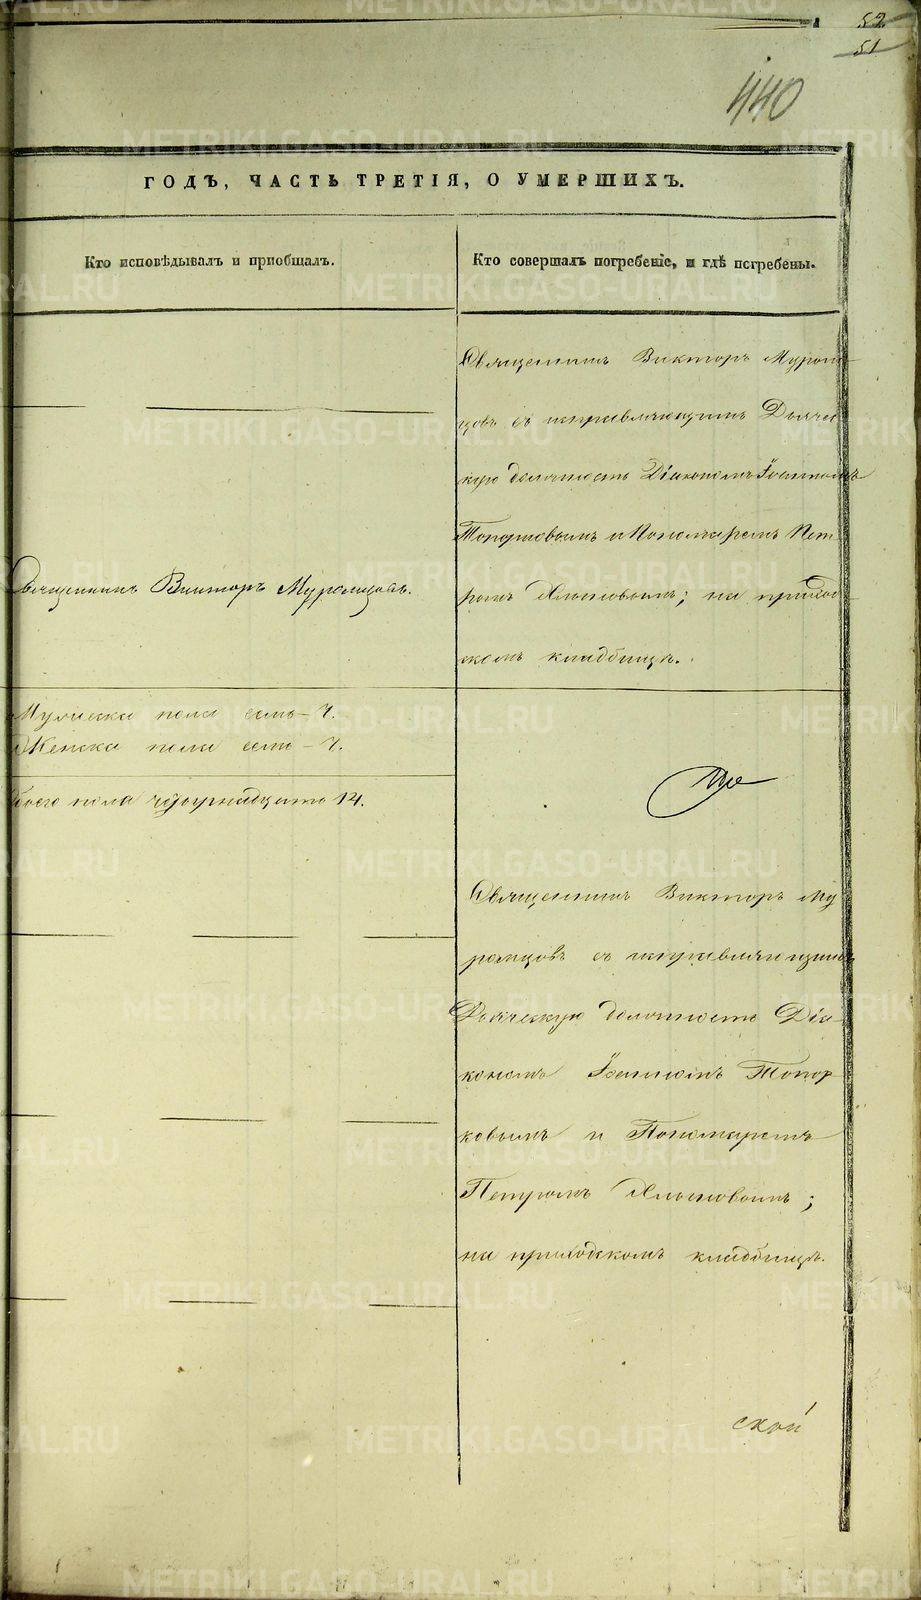 52
51
440
ГОДЪ, ЧАСТЬ ТРЕТІЯ, О УМЕРШИХЪ.
Кто исповѣдывалъ и пріобщалъ.
Кто совершалъ погребеніе, и гдѣ погребены.
Священникъ Викторъ Муром-
цовъ съ исправляющимъ Дьячес-
кую должность Діакономъ Іоанномъ
Топорковымъ и Пономаремъ Пет-
ромъ
; на приход-
скомъ кладбищѣ.
Священникъ Викторъ Муромцовъ.
Мужеска пола семь - 7.
Женска пола семь - 7.
Обоего пола четырнадцать 14.
Священникъ Викторъ Му-
ромцовъ съ исправляющимъ
Дьяческую должность Діа-
кономъ Іоанномъ Топор-
ковымъ и Пономаремъ
Петромъ
;
на приходскомъ кладбищѣ.
ской
METRIKI.GASO-URAL.RU